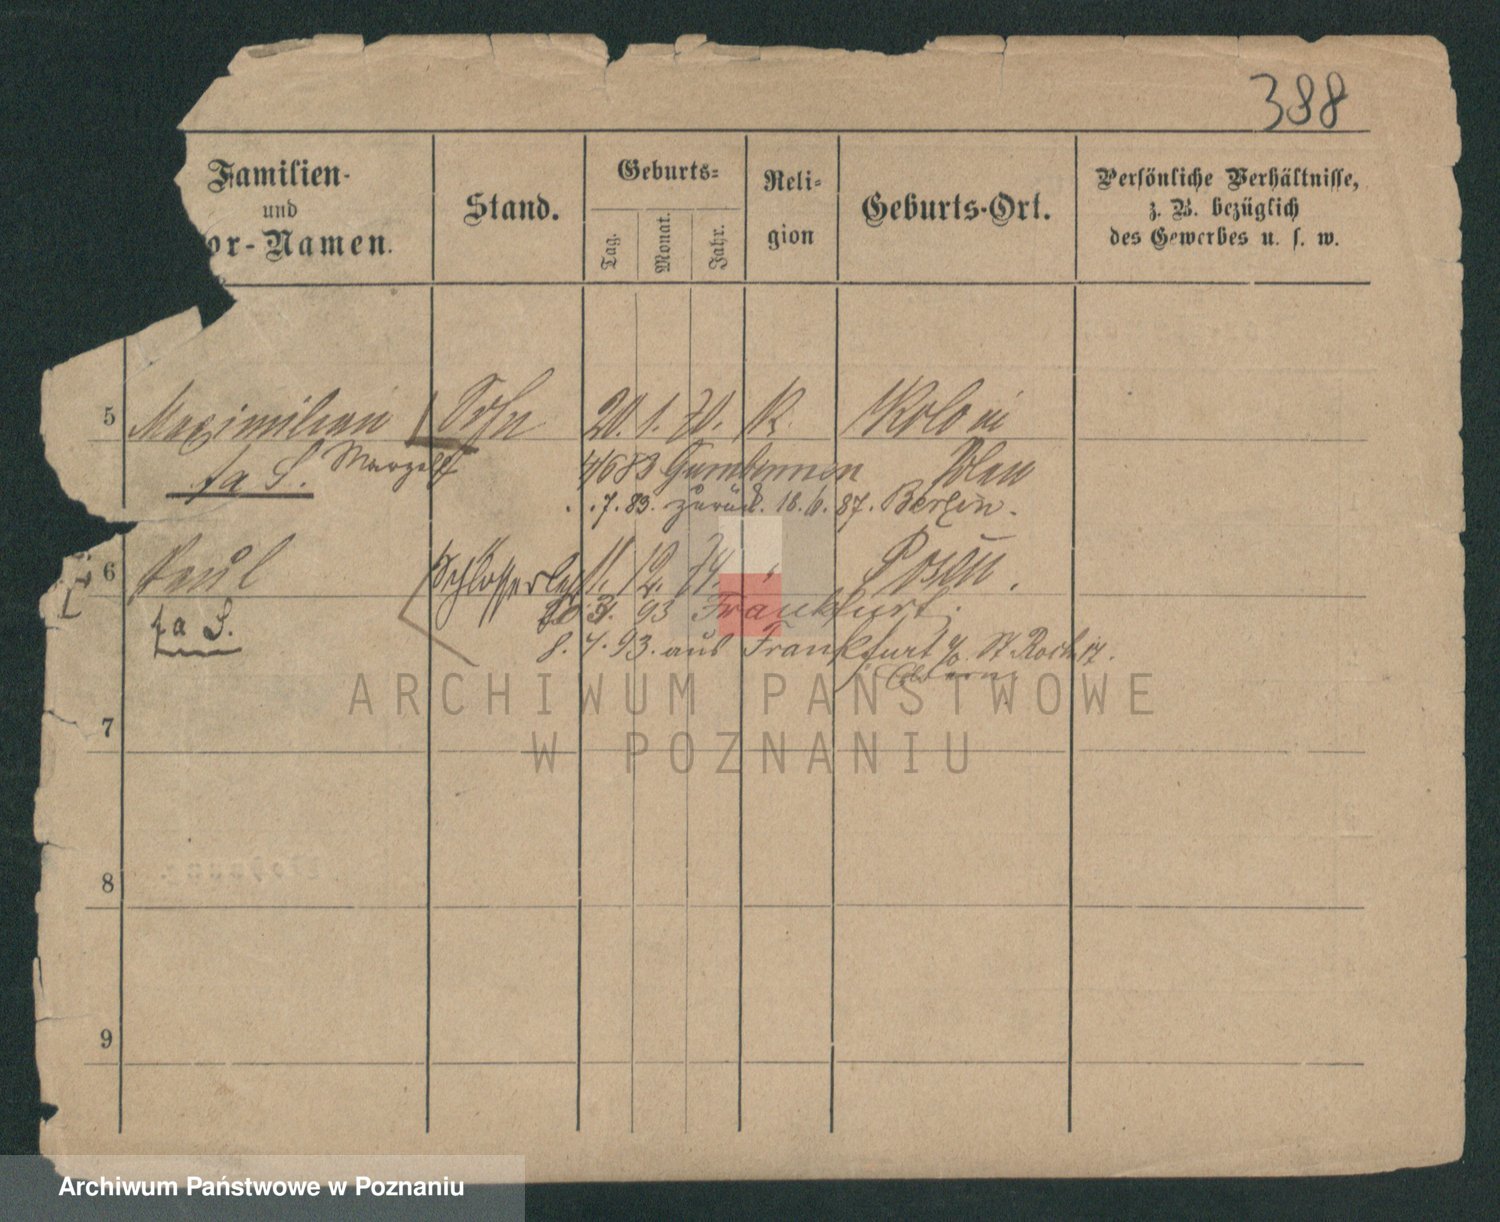 388
Familien-
und
or-Namen.
Stand.
Geburts-
Tag.
Monat.
Jahr.
Reli-
gion
Geburts-Ort.
Persönliche Verhältnisse,
z. B. bezüglich
des Gewerbes u. s. w.
5 Maximilian Sohn 20. 1. 70. K.
fa S. 83 Gumbinnen
7. 83. zurück. 87. Berlin.
6 Paul Schlosserlehrl 11. 12. 74. Posen.
93 Frankfurt.
fa S.
8. 7. 93. aus Frankfurt a/O. St Roch 17.
7
8
9
ARCHIWUM PAŃSTWOWE
W POZNANIU
Archiwum Państwowe w Poznaniu